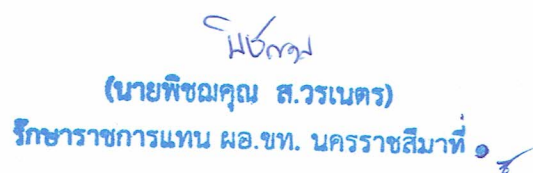 (นายพิชฌคุณ ส.วรเนตร)
รักษาราชการแทน ผอ.ขท. นครราชสีมาที่ ๑